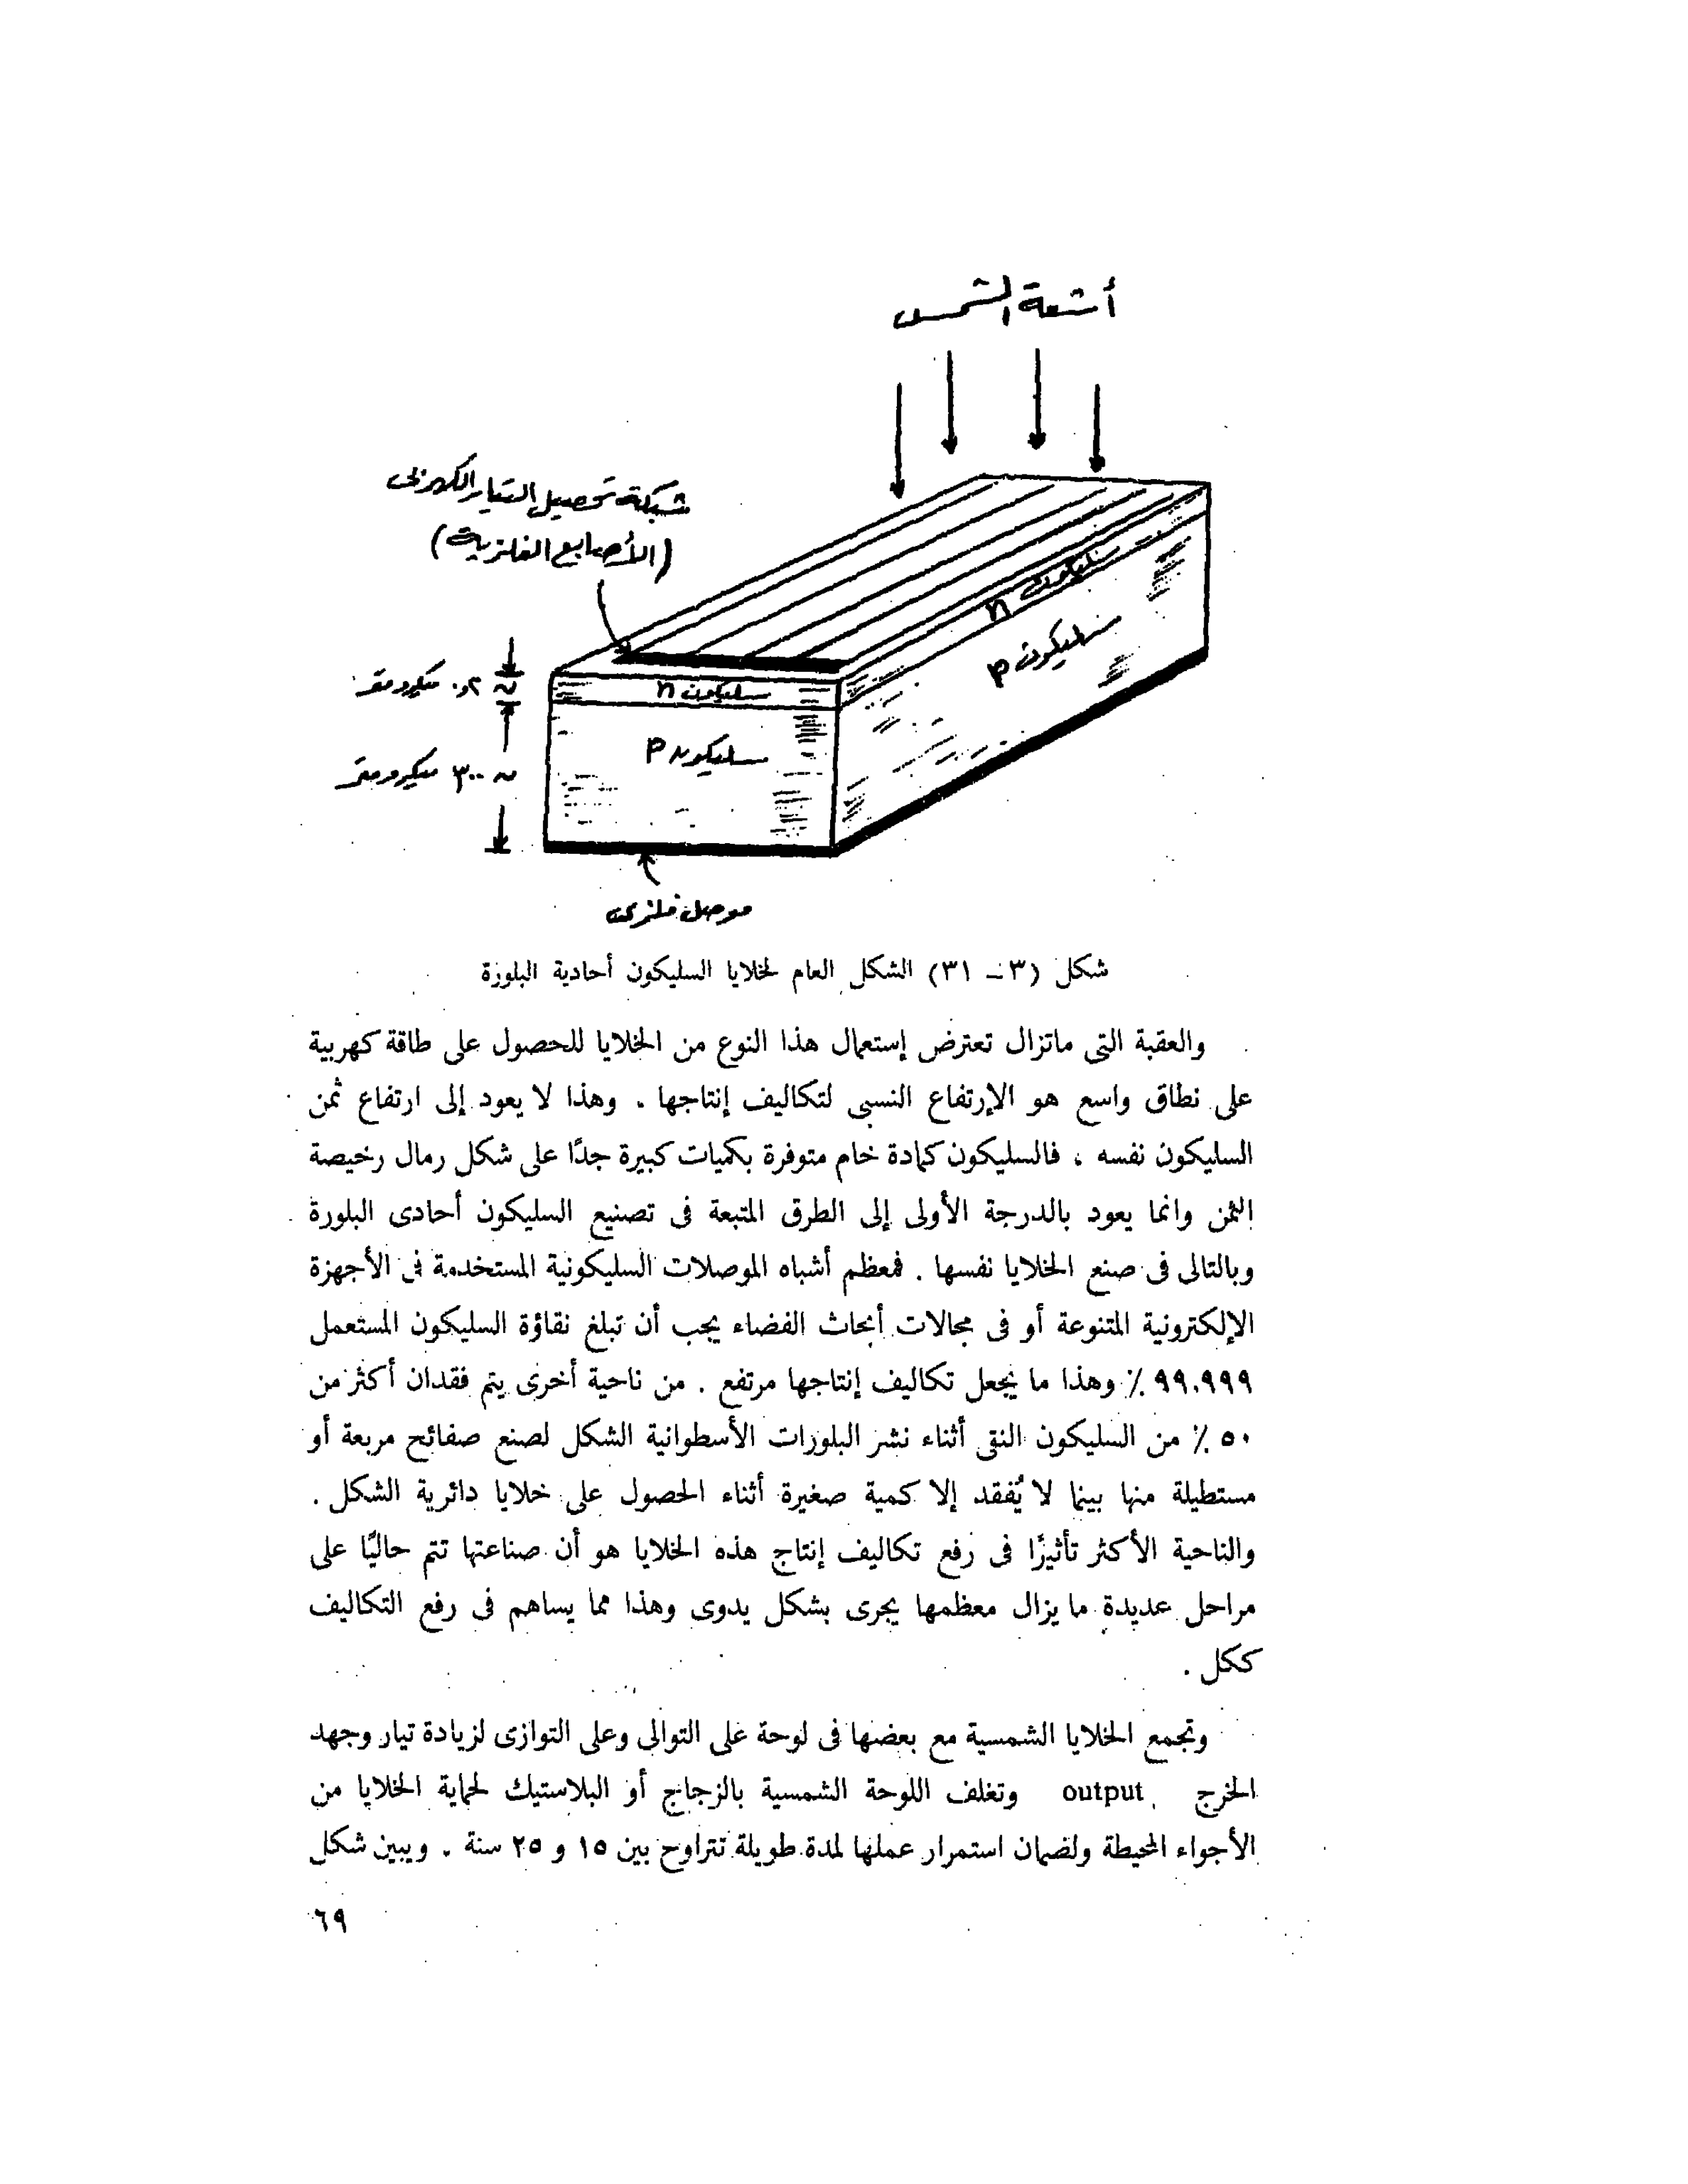 أشعة الشمس
شبكة تحصيل التيار الكهربى
(الأصابع الفلزية)
سليكون n
سليكون p
~ ٠,٢ ميكرومتر
سليكون n
سليكون p
~ ٣٠٠ ميكرومتر
موصل فلزى
شكل (٣ – ٣١) الشكل العام لخلايا السليكون أحادية البلورة
والعقبة التى ماتزال تعترض إستعمال هذا النوع من الخلايا للحصول على طاقة كهربية
على نطاق واسع هو الإرتفاع النسبى لتكاليف إنتاجها . وهذا لا يعود إلى ارتفاع ثمن
السليكون نفسه ، فالسليكون كمادة خام متوفرة بكميات كبيرة جدًا على شكل رمال رخيصة
الثمن وانما يعود بالدرجة الأولى إلى الطرق المتبعة فى تصنيع السليكون أحادى البلورة
وبالتالى فى صنع الخلايا نفسها . فمعظم أشباه الموصلات السليكونية المستخدمة فى الأجهزة
الإلكترونية المتنوعة أو فى مجالات أبحاث الفضاء يجب أن تبلغ نقاؤة السليكون المستعمل
٩٩,٩٩٩ ٪ وهذا ما يجعل تكاليف إنتاجها مرتفع . من ناحية أخرى يتم فقدان أكثر من
٥٠ ٪ من السليكون النقى أثناء نشر البلورات الأسطوانية الشكل لصنع صفائح مربعة أو
مستطيلة منها بينما لا يُفقد إلا كمية صغيرة أثناء الحصول على خلايا دائرية الشكل .
والناحية الأكثر تأثيرًا فى رفع تكاليف إنتاج هذه الخلايا هو أن صناعتها تتم حاليًا على
مراحل عديدة ما يزال معظمها يجرى بشكل يدوى وهذا مما يساهم فى رفع التكاليف
ككل .
وتجمع الخلايا الشمسية مع بعضها فى لوحة على التوالى وعلى التوازى لزيادة تيار وجهد
الخرج output وتغلف اللوحة الشمسية بالزجاج أو البلاستيك لحماية الخلايا من
الأجواء المحيطة ولضمان استمرار عملها لمدة طويلة تتراوح بين ١٥ و ٢٥ سنة . ويبين شكل
٦٩